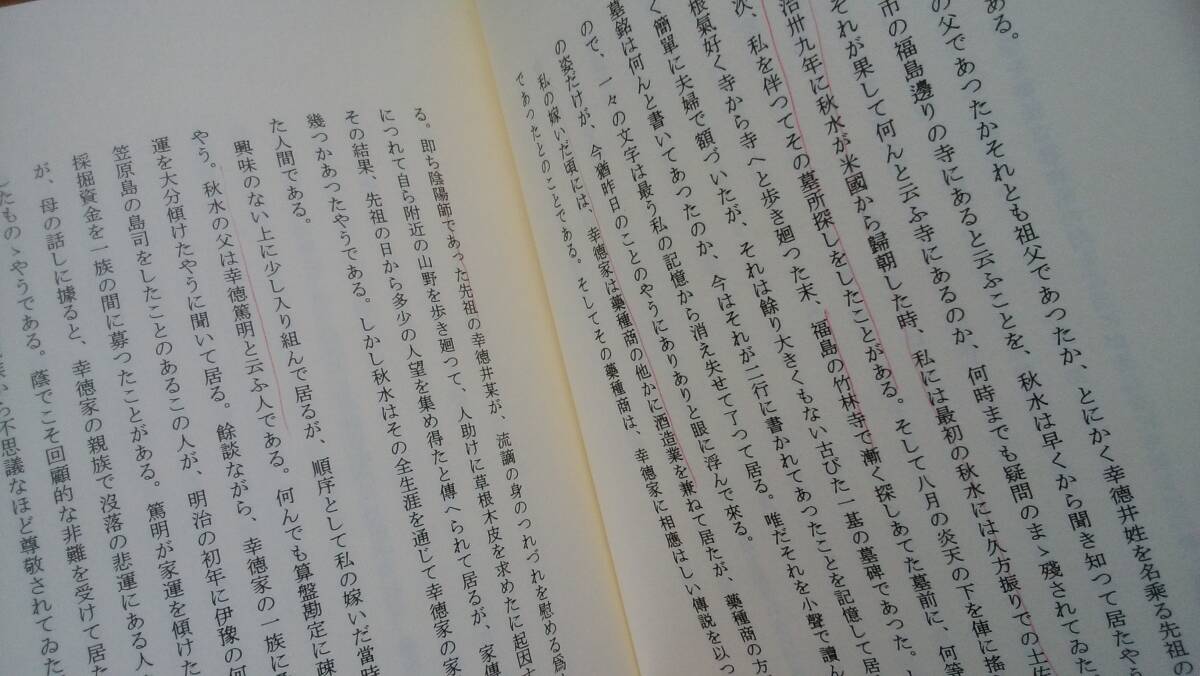 ある。
の父であつたかそれとも祖父であつたか、とにかく幸德井姓を名乘る先祖の
市の福島邊りの寺にあると云ふことを、秋水は早くから聞き知つて居たやう
それが果して何んと云ふ寺にあるのか、何時までも疑問のまゝ殘されてゐた
治卅九年に秋水が米國から歸朝した時、私には最初の秋水には久方振りでの土佐
次、私を伴つてその墓所探しをしたことがある。そして八月の炎天の下を俥に搖
根氣好く寺から寺へと歩き廻つた末、福島の竹林寺で漸く探しあてた墓前に、何等
く簡單に夫婦で額づいたが、それは餘り大きくもない古びた一基の墓碑であつた。
墓銘は何んと書いてあつたのか、今はそれが二行に書かれてあつたことを記憶して居
ので、一々の文字は最う私の記憶から消え失せて了つて居る。唯だそれを小聲で讀ん
の姿だけが、今猶昨日のことのやうにありありと眼に浮んで來る。
私の嫁いだ頃には、幸德家は藥種商の他かに酒造業を兼ねて居たが、藥種商の方
であつたとのことである。そしてその藥種商は、幸德家に相應はしい傳説を以つ
る。即ち陰陽師であつた先祖の幸德井某が、流謫の身のつれづれを慰める爲
につれて自ら附近の山野を歩き廻つて、人助けに草根木皮を求めたに起因す
その結果、先祖の日から多少の人望を集め得たと傳へられて居るが、家傳
幾つかあつたやうである。しかし秋水はその全生涯を通じて幸德家の家
た人間である。
興味のない上に少し入り組んで居るが、順序として私の嫁いだ當時
やう。秋水の父は幸德篤明と云ふ人である。何んでも算盤勘定に疎
運を大分傾けたやうに聞いて居る。餘談ながら、幸德家の一族に
笠原島の島司をしたことのあるこの人が、明治の初年に伊豫の何
採掘資金を一族の間に募つたことがある。篤明が家運を傾けた
が、母の話しに據ると、幸德家の親族で沒落の悲運にある人
したものゝやうである。蔭でこそ回顧的な非難を受けて居た
から不思議なほど尊敬されてゐた